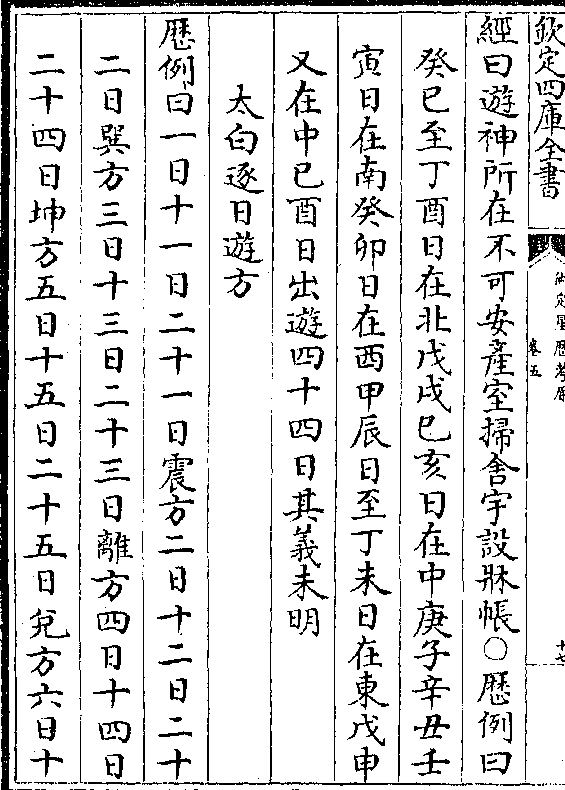 欽定四庫全書
御定星歷考原
卷五
十七
經曰遊神所在不可安產室掃舍宇設牀帳○歷例曰
癸巳至丁酉日在北戊戌己亥日在中庚子辛丑壬
寅日在南癸卯日在西甲辰日至丁未日在東戊申
又在中己酉日出遊四十四日其義未明
太白逐日遊方
歷例曰一日十一日二十一日震方二日十二日二十
二日巽方三日十三日二十三日離方四日十四日
二十四日坤方五日十五日二十五日兌方六日十